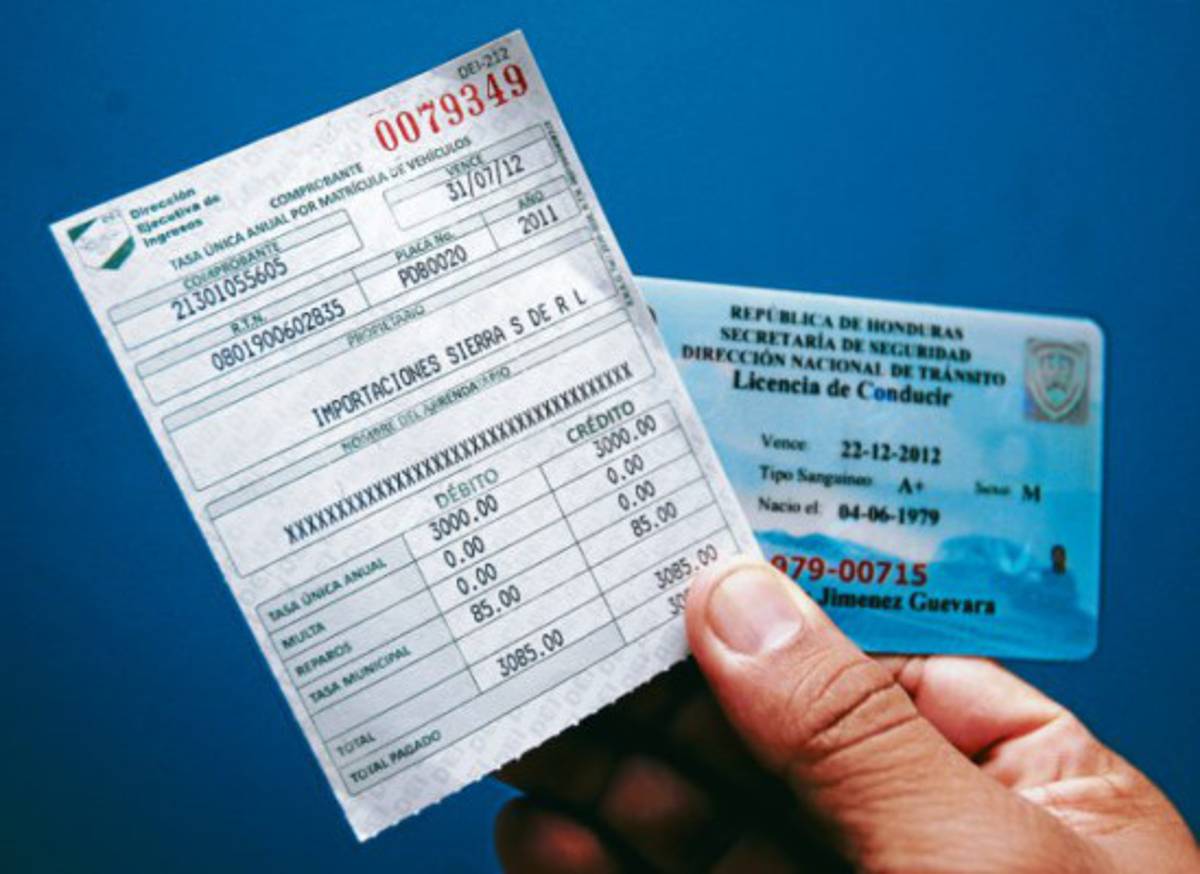 DEI-212
0079349
Dirección
Ejecutiva de
Ingresos
COMPROBANTE
TASA ÚNICA ANUAL POR MATRÍCULA DE VEHÍCULOS
COMPROBANTE
21301055605
VENCE
31/07/12
R.T.N.
0801900602835
PLACA No.
PDB0020
AÑO
2011
PROPIETARIO
IMPORTACIONES SIERRA S DE R L
NOMBRE DEL ARRENDATARIO
XXXXXXXXXXXXXXXXXXXXXXXXXXXXXXXXXXXXXXXX
DÉBITO CRÉDITO
TASA ÚNICA ANUAL 3000.00 3000.00
MULTA 0.00 0.00
REPAROS 0.00 0.00
TASA MUNICIPAL 85.00 85.00
TOTAL 3085.00 3085.00
TOTAL PAGADO
REPÚBLICA DE HONDURAS
SECRETARÍA DE SEGURIDAD
DIRECCIÓN NACIONAL DE TRÁNSITO
Licencia de Conducir
Vence: 22-12-2012
Tipo Sanguineo A+ Sexo: M
Nacio el: 04-06-1979
979-00715
Jimenez Guevara